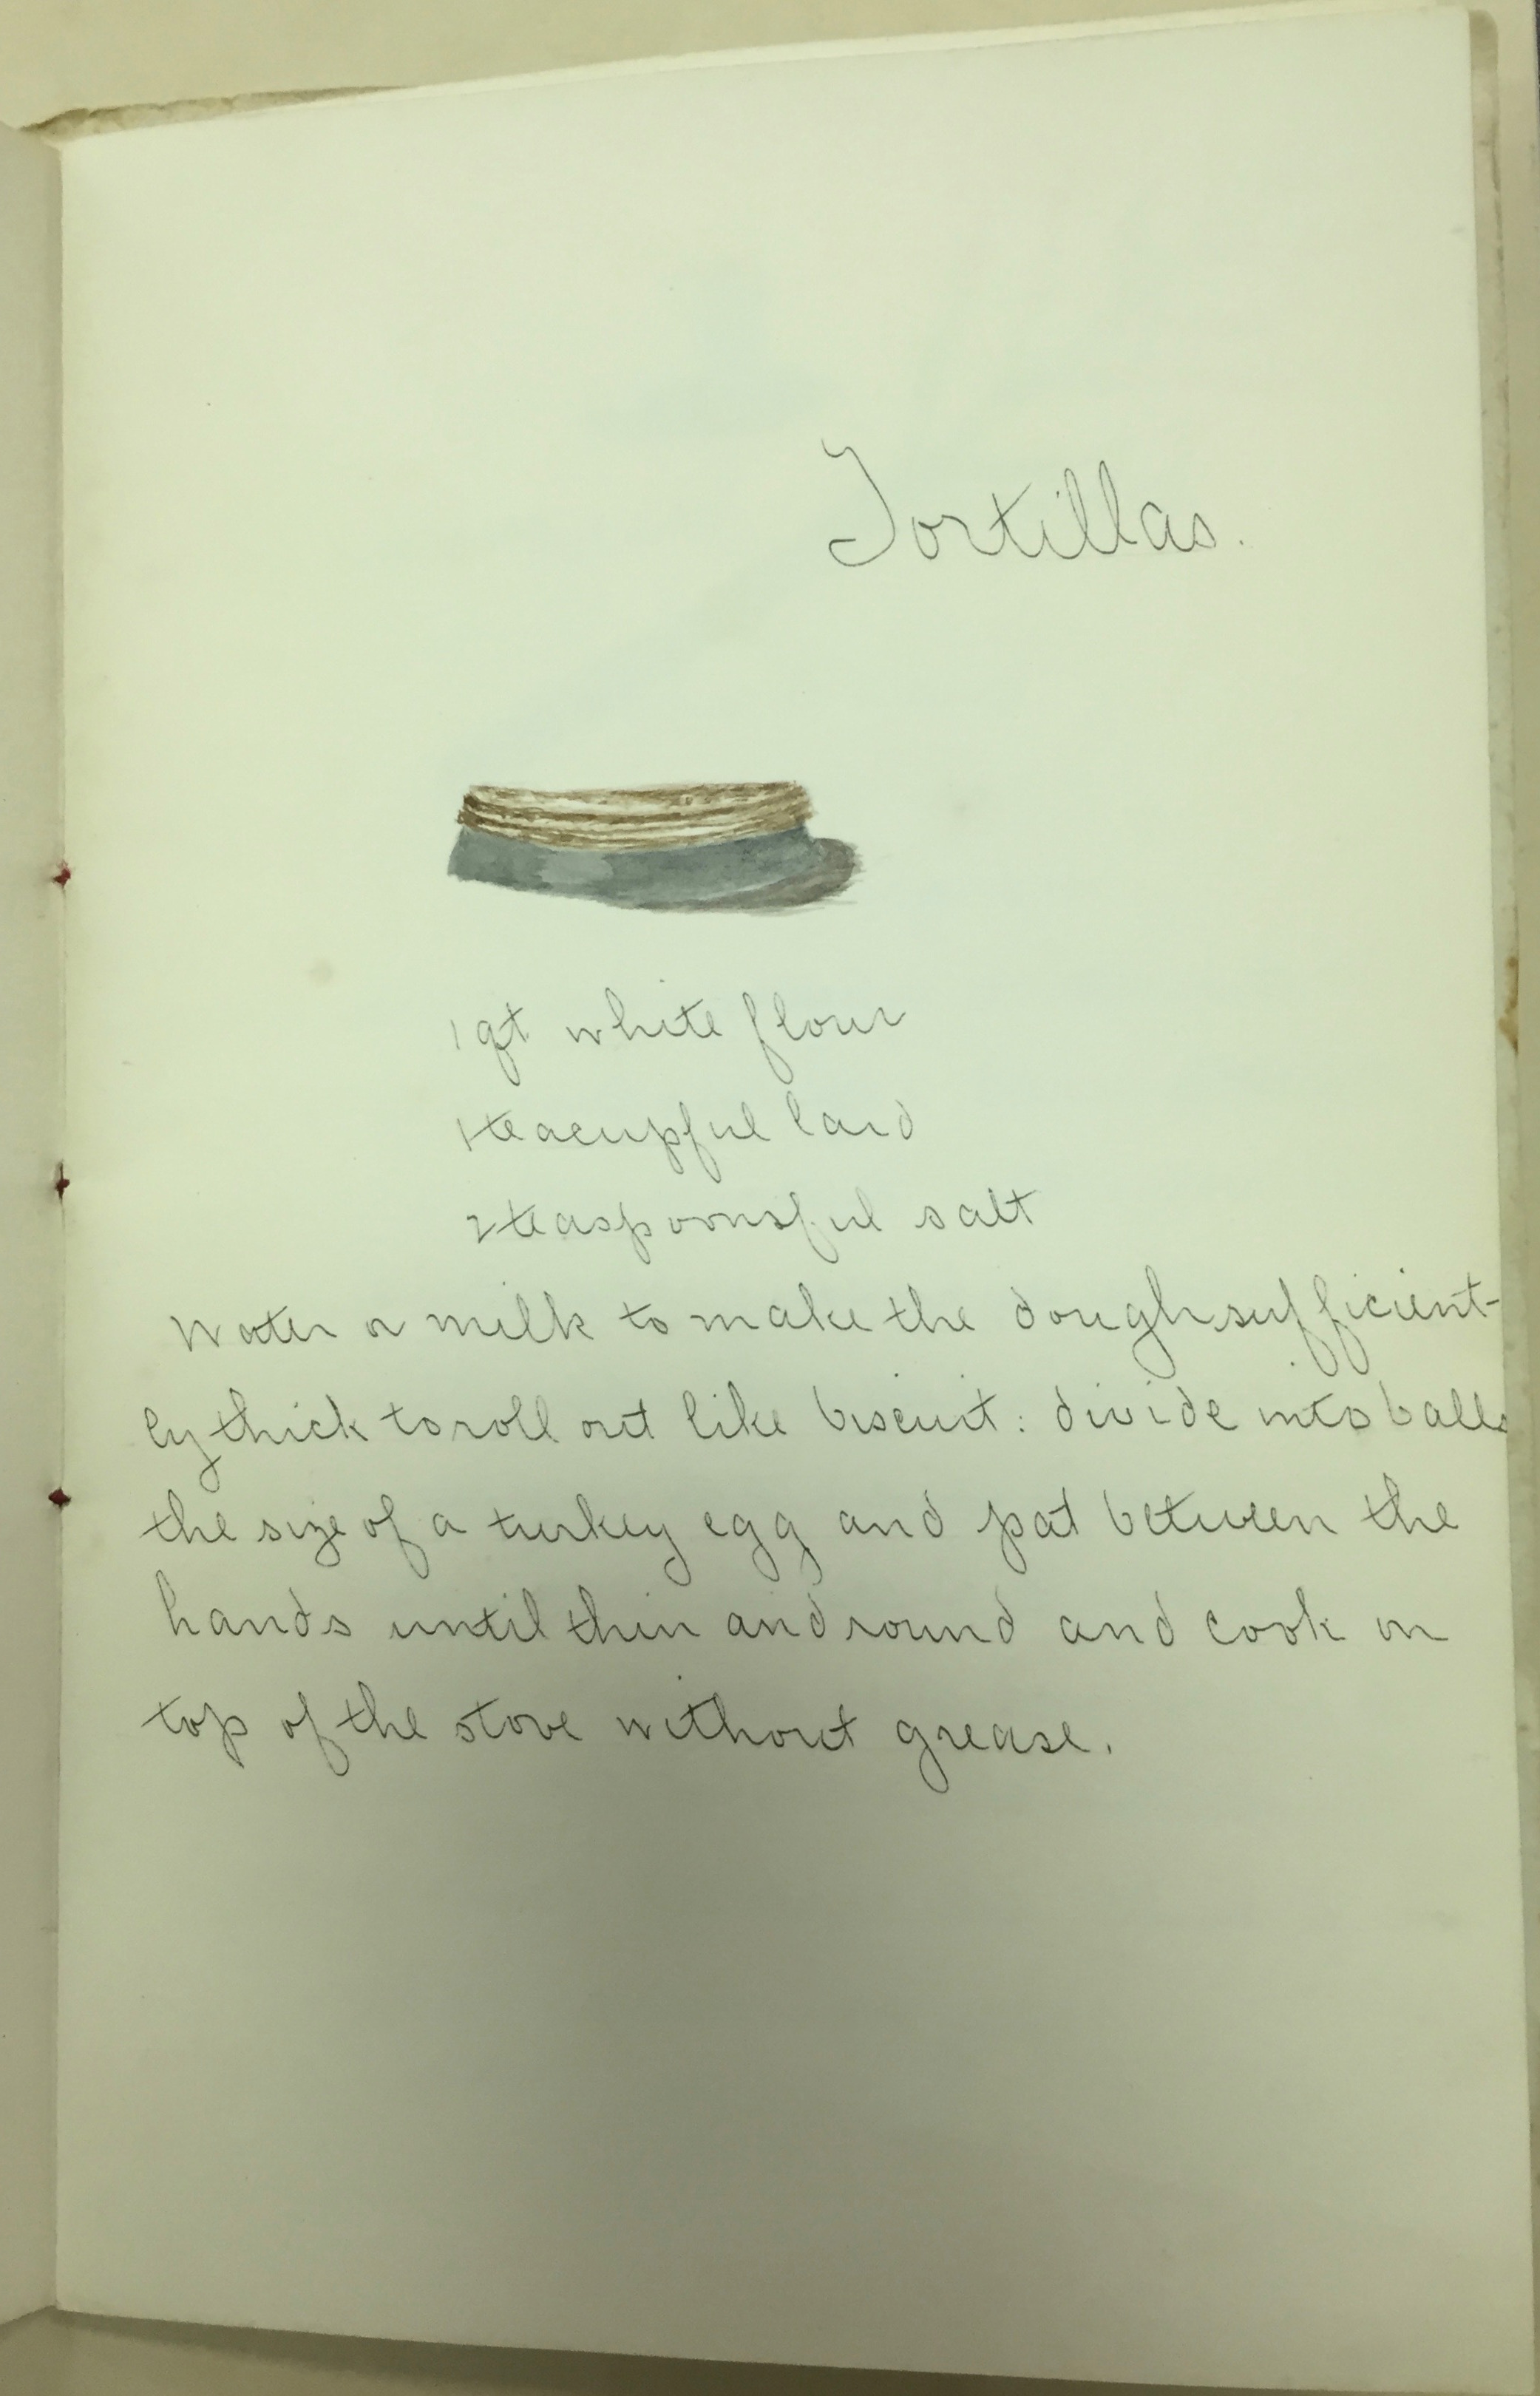 Tortillas.
1 qt white flour
1 teacupful lard
2 teaspoonsful salt
Water or milk to make the dough sufficient-
ly thick to roll out like biscuit: divide into balls
the size of a turkey egg and pat between the
hands until thin and round and cook on
top of the stove without grease.